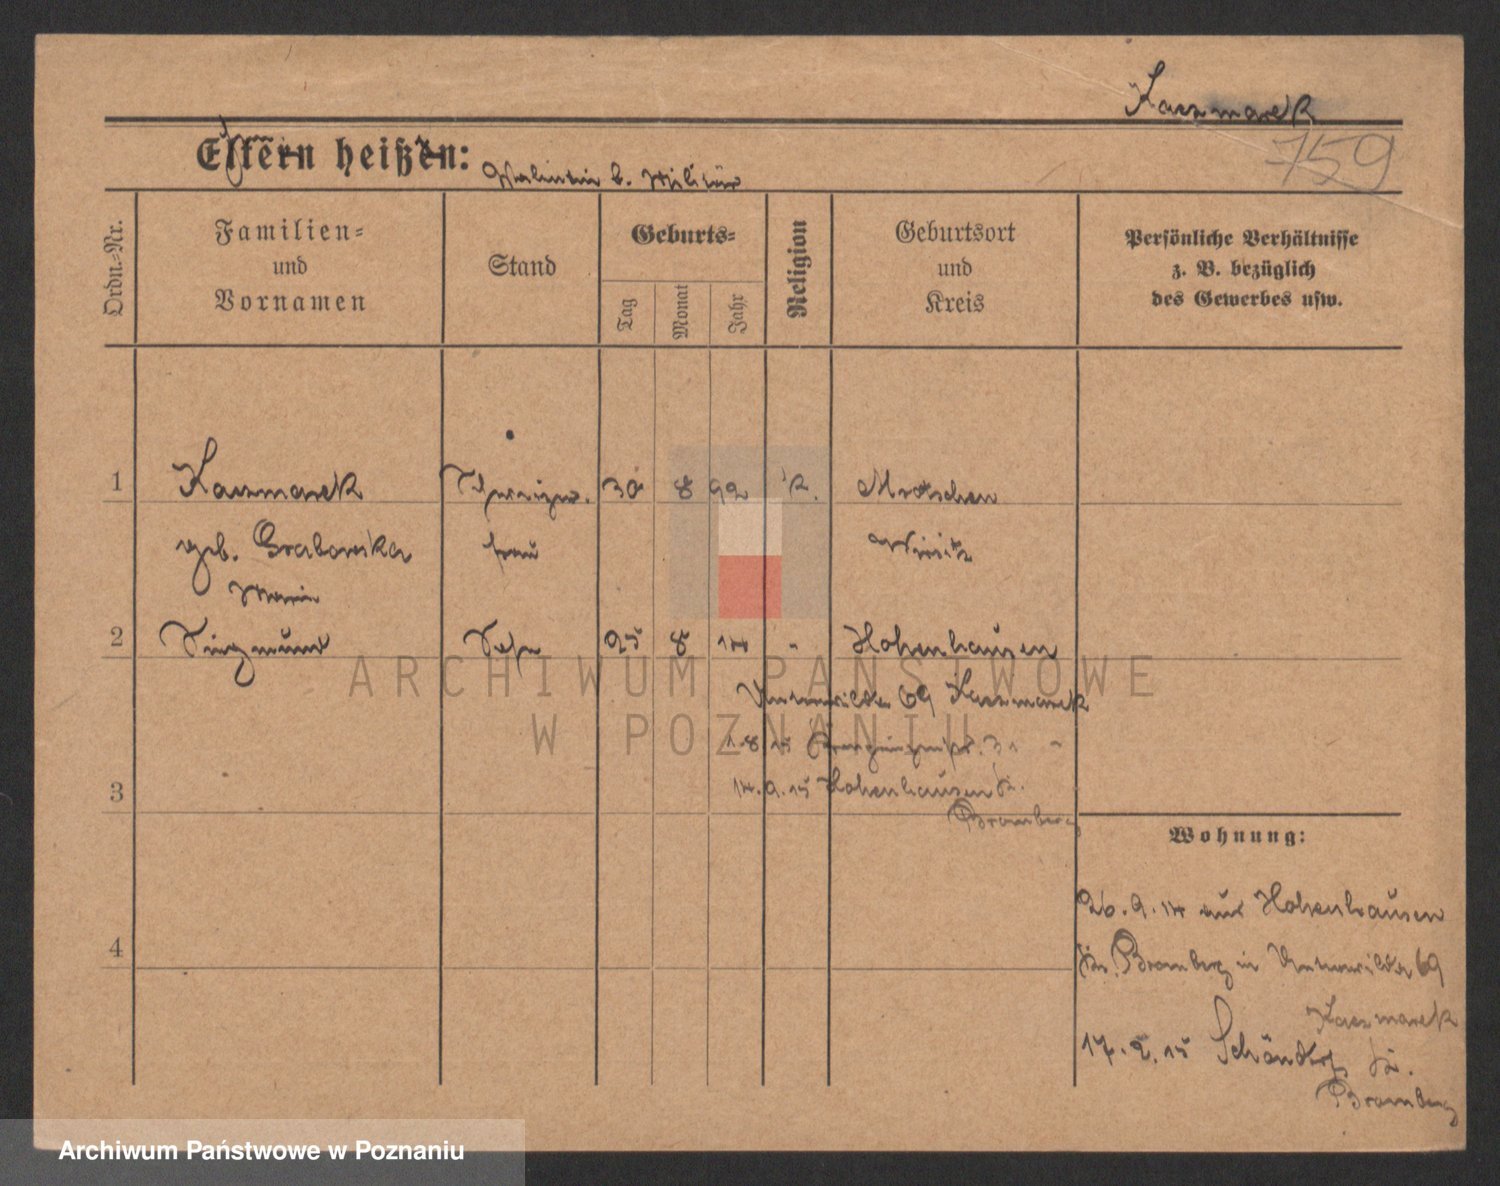 Kaczmarek
759
Eltern heißen: Valentin b. Militär
Ordn.-Nr.
Familien-
und
Vornamen
Stand
Geburts-
Tag
Monat
Jahr
Religion
Geburtsort
und
Kreis
Persönliche Verhältnisse
z. B. bezüglich
des Gewerbes usw.
1 Kaczmarek 30 8 92 K. Mrotschen
geb. Grabowska frau Wirsitz
Maria
2 Siegmund Sohn 25 8 14 - Hohenhausen
69 Kaczmarek
1.8.15
3 14.9.15 Hohenhausen Kr.
Bromberg
Wohnung:
26.9.14 aus Hohenhausen
4 Kr. Bromberg in 69
Kaczmarek
17.2.15 Schöndorf Kr.
Bromberg
ARCHIWUM PAŃSTWOWE
W POZNANIU
Archiwum Państwowe w Poznaniu